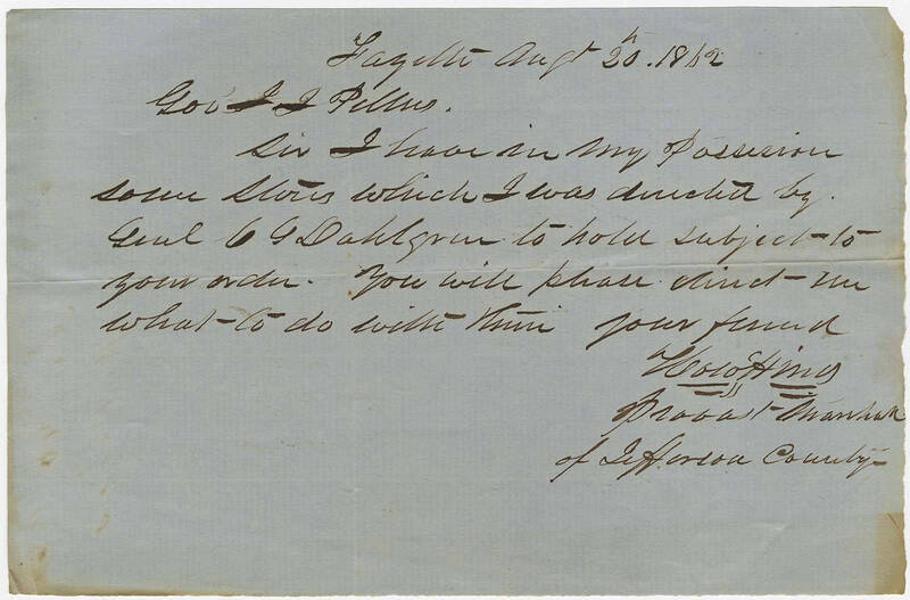 Fayette Augt 20th. 1862
Gov J J Pettus.
Sir I have in my Possession
some Stores which I was directed by
Genl C G Dahlgren to hold subject to
your order. You will please direct me
what to do with them your friend
Provost Marshall
of Jefferson County